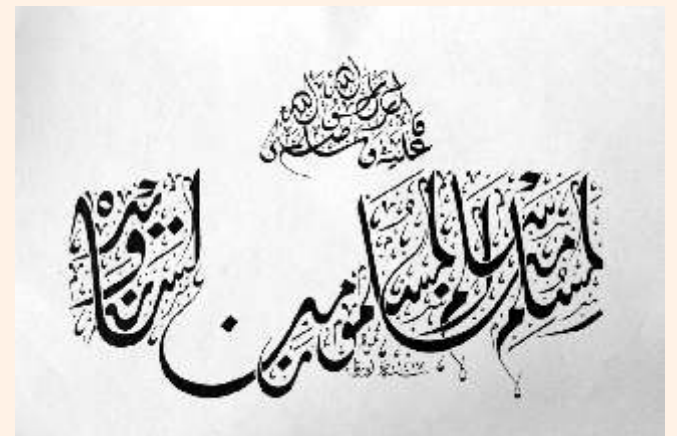 قال رسول الله صلى الله عليه وسلم
المسلم من سلم المسلمون من لسانه ويده